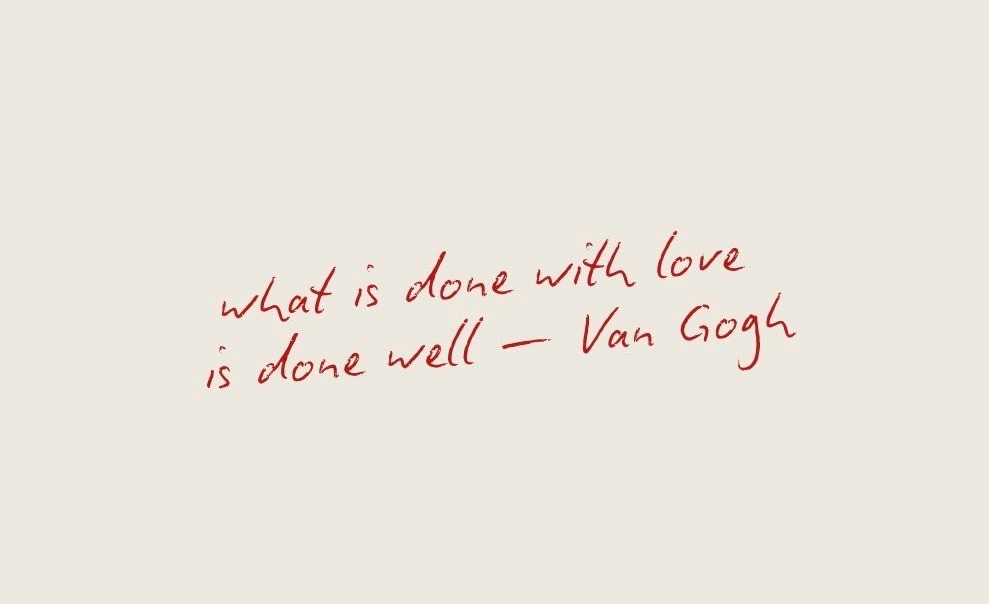 what is done with love
is done well — Van Gogh